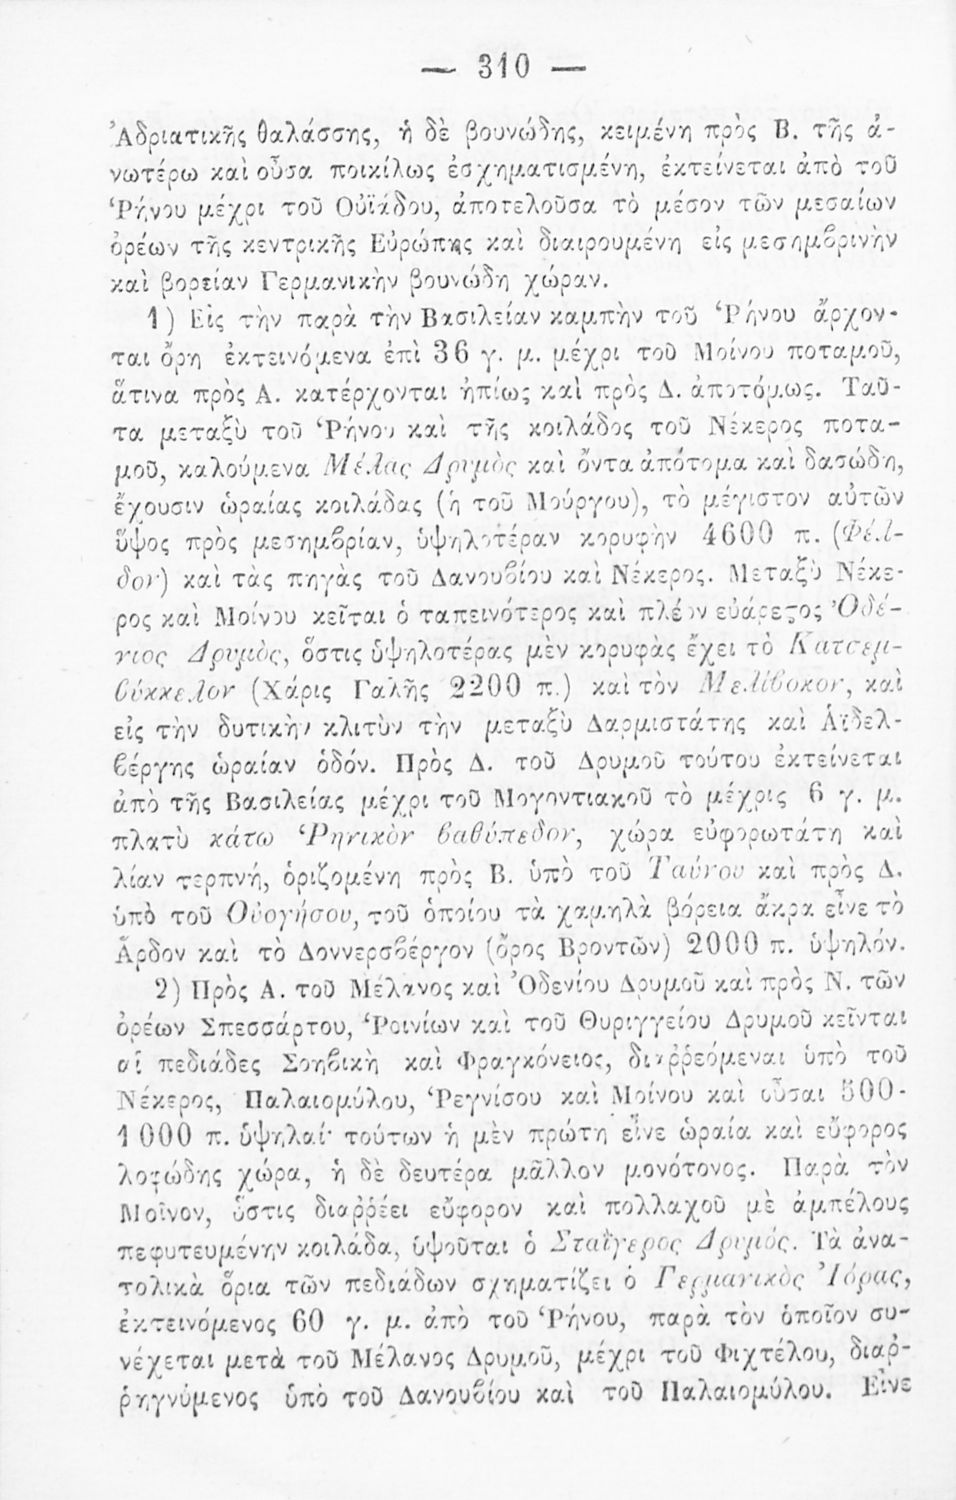 — 310 —
Ἀδριατικῆς θαλάσσης, ἡ δὲ βουνώδης, κειμένη πρὸς Β. τῆς ἀ-
νωτέρω καὶ οὖσα ποικίλως ἐσχηματισμένη, ἐκτείνεται ἀπὸ τοῦ
Ῥήνου μέχρι τοῦ Οὐϊάδου, ἀποτελοῦσα τὸ μέσον τῶν μεσαίων
ὀρέων τῆς κεντρικῆς Εὐρώπης καὶ διαιρουμένη εἰς μεσημβρινὴν
καὶ βορείαν Γερμανικὴν βουνώδη χώραν.
1) Εἰς τὴν παρὰ τὴν Βασιλείαν καμπὴν τοῦ Ῥήνου ἄρχον-
ται ὄρη ἐκτεινόμενα ἐπὶ 36 γ. μ. μέχρι τοῦ Μοίνου ποταμοῦ,
ἅτινα πρὸς Α. κατέρχονται ἠπίως καὶ πρὸς Δ. ἀποτόμως. Ταῦ-
τα μεταξὺ τοῦ Ῥήνου καὶ τῆς κοιλάδος τοῦ Νέκερος ποτα-
μοῦ, καλούμενα Μέλας Δρυμὸς καὶ ὄντα ἀπότομα καὶ δασώδη,
ἔχουσιν ὡραίας κοιλάδας (ἡ τοῦ Μούργου), τὸ μέγιστον αὐτῶν
ὕψος πρὸς μεσημβρίαν, ὑψηλοτέραν κορυφὴν 4600 π. (Φέλ-
δον) καὶ τὰς πηγὰς τοῦ Δανουβίου καὶ Νέκερος. Μεταξὺ Νέκε-
ρος καὶ Μοίνου κεῖται ὁ ταπεινότερος καὶ πλέον εὐάρεστος Ὀδέ-
νιος Δρυμὸς, ὅστις ὑψηλοτέρας μὲν κορυφὰς ἔχει τὸ Κατσεμ-
βύκκελον (Χάρις Γαλῆς 2200 π.) καὶ τὸν Μελίβοκον, καὶ
εἰς τὴν δυτικὴν κλιτὺν τὴν μεταξὺ Δαρμιστάτης καὶ Ἀϊδελ-
βέργης ὡραίαν ὁδόν. Πρὸς Δ. τοῦ Δρυμοῦ τούτου ἐκτείνεται
ἀπὸ τῆς Βασιλείας μέχρι τοῦ Μογοντιακοῦ τὸ μέχρις 6 γ. μ.
πλατὺ κάτω Ῥηνικὸν βαθύπεδον, χώρα εὐφορωτάτη καὶ
λίαν τερπνή, ὁριζομένη πρὸς Β. ὑπὸ τοῦ Ταύνου καὶ πρὸς Δ.
ὑπὸ τοῦ Οὐογήσου, τοῦ ὁποίου τὰ χαμηλὰ βόρεια ἄκρα εἶνε τὸ
Ἄρδον καὶ τὸ Δοννερσβέργον (ὄρος Βροντῶν) 2000 π. ὑψηλόν.
2) Πρὸς Α. τοῦ Μέλανος καὶ Ὀδενίου Δρυμοῦ καὶ πρὸς Ν. τῶν
ὀρέων Σπεσσάρτου, Ῥοινίων καὶ τοῦ Θυριγγείου Δρυμοῦ κεῖνται
αἱ πεδιάδες Σοηβικὴ καὶ Φραγκόνειος, διαῤῥεόμεναι ὑπὸ τοῦ
Νέκερος, Παλαιομύλου, Ῥεγνίσου καὶ Μοίνου καὶ οὖσαι 500-
1000 π. ὑψηλαί· τούτων ἡ μὲν πρώτη εἶνε ὡραία καὶ εὔφορος
λοφώδης χώρα, ἡ δὲ δευτέρα μᾶλλον μονότονος. Παρὰ τὸν
Μοῖνον, ὅστις διαῤῥέει εὔφορον καὶ πολλαχοῦ μὲ ἀμπέλους
πεφυτευμένην κοιλάδα, ὑψοῦται ὁ Σταΐγερος Δρυμός. Τὰ ἀνα-
τολικὰ ὅρια τῶν πεδιάδων σχηματίζει ὁ Γερμανικὸς Ἰόρας,
ἐκτεινόμενος 60 γ. μ. ἀπὸ τοῦ Ῥήνου, παρὰ τὸν ὁποῖον συ-
νέχεται μετὰ τοῦ Μέλανος Δρυμοῦ, μέχρι τοῦ Φιχτέλου, διαῤ-
ῥηγνύμενος ὑπὸ τοῦ Δανουβίου καὶ τοῦ Παλαιομύλου. Εἶνε